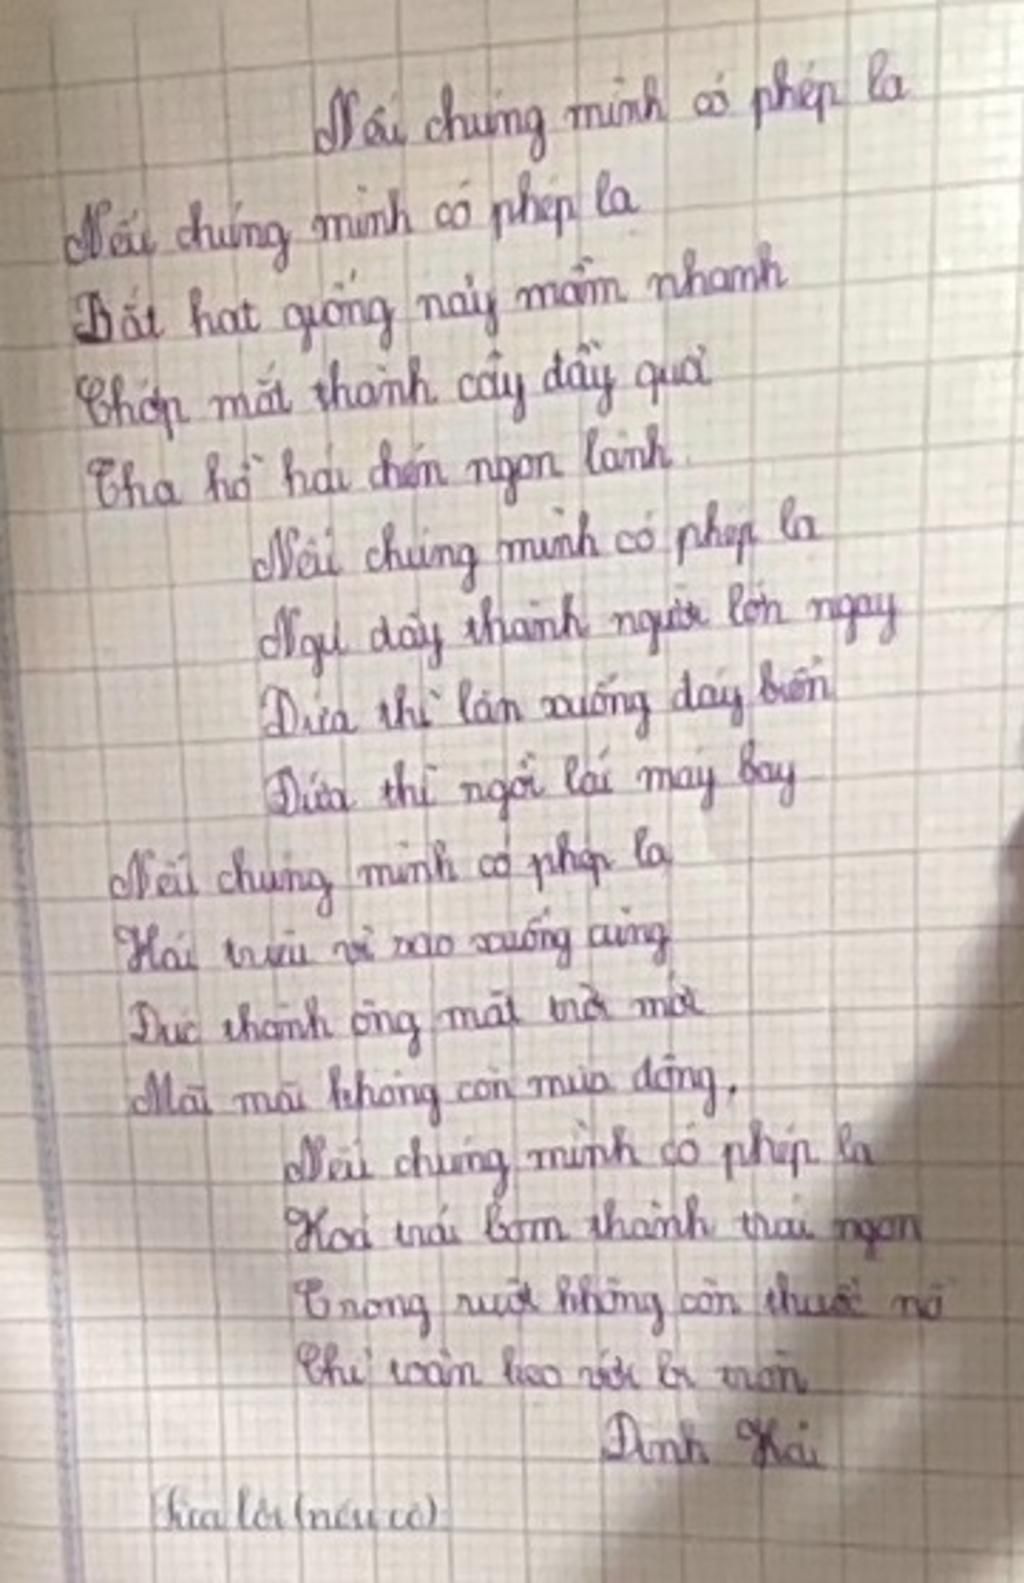 Nếu chúng mình có phép lạ
Nếu chúng mình có phép lạ
Bắt hạt giống nảy mầm nhanh
Chớp mắt thành cây đầy quả
Tha hồ hái chén ngọn lành
Nếu chúng mình có phép lạ
Ngủ dậy thành người lớn ngay
Đứa thì lặn xuống đáy biển
Đứa thì ngồi lái máy bay
Nếu chúng mình có phép lạ
Hái triệu vì sao xuống cùng
Đúc thành ông mặt trời mới
Mãi mãi không còn mùa đông.
Nếu chúng mình có phép lạ
Hoá trái bom thành trái ngon
Trong ruột không còn thuốc nổ
Chỉ toàn kẹo với bi tròn
Định Hải
Sửa lỗi (nếu có)